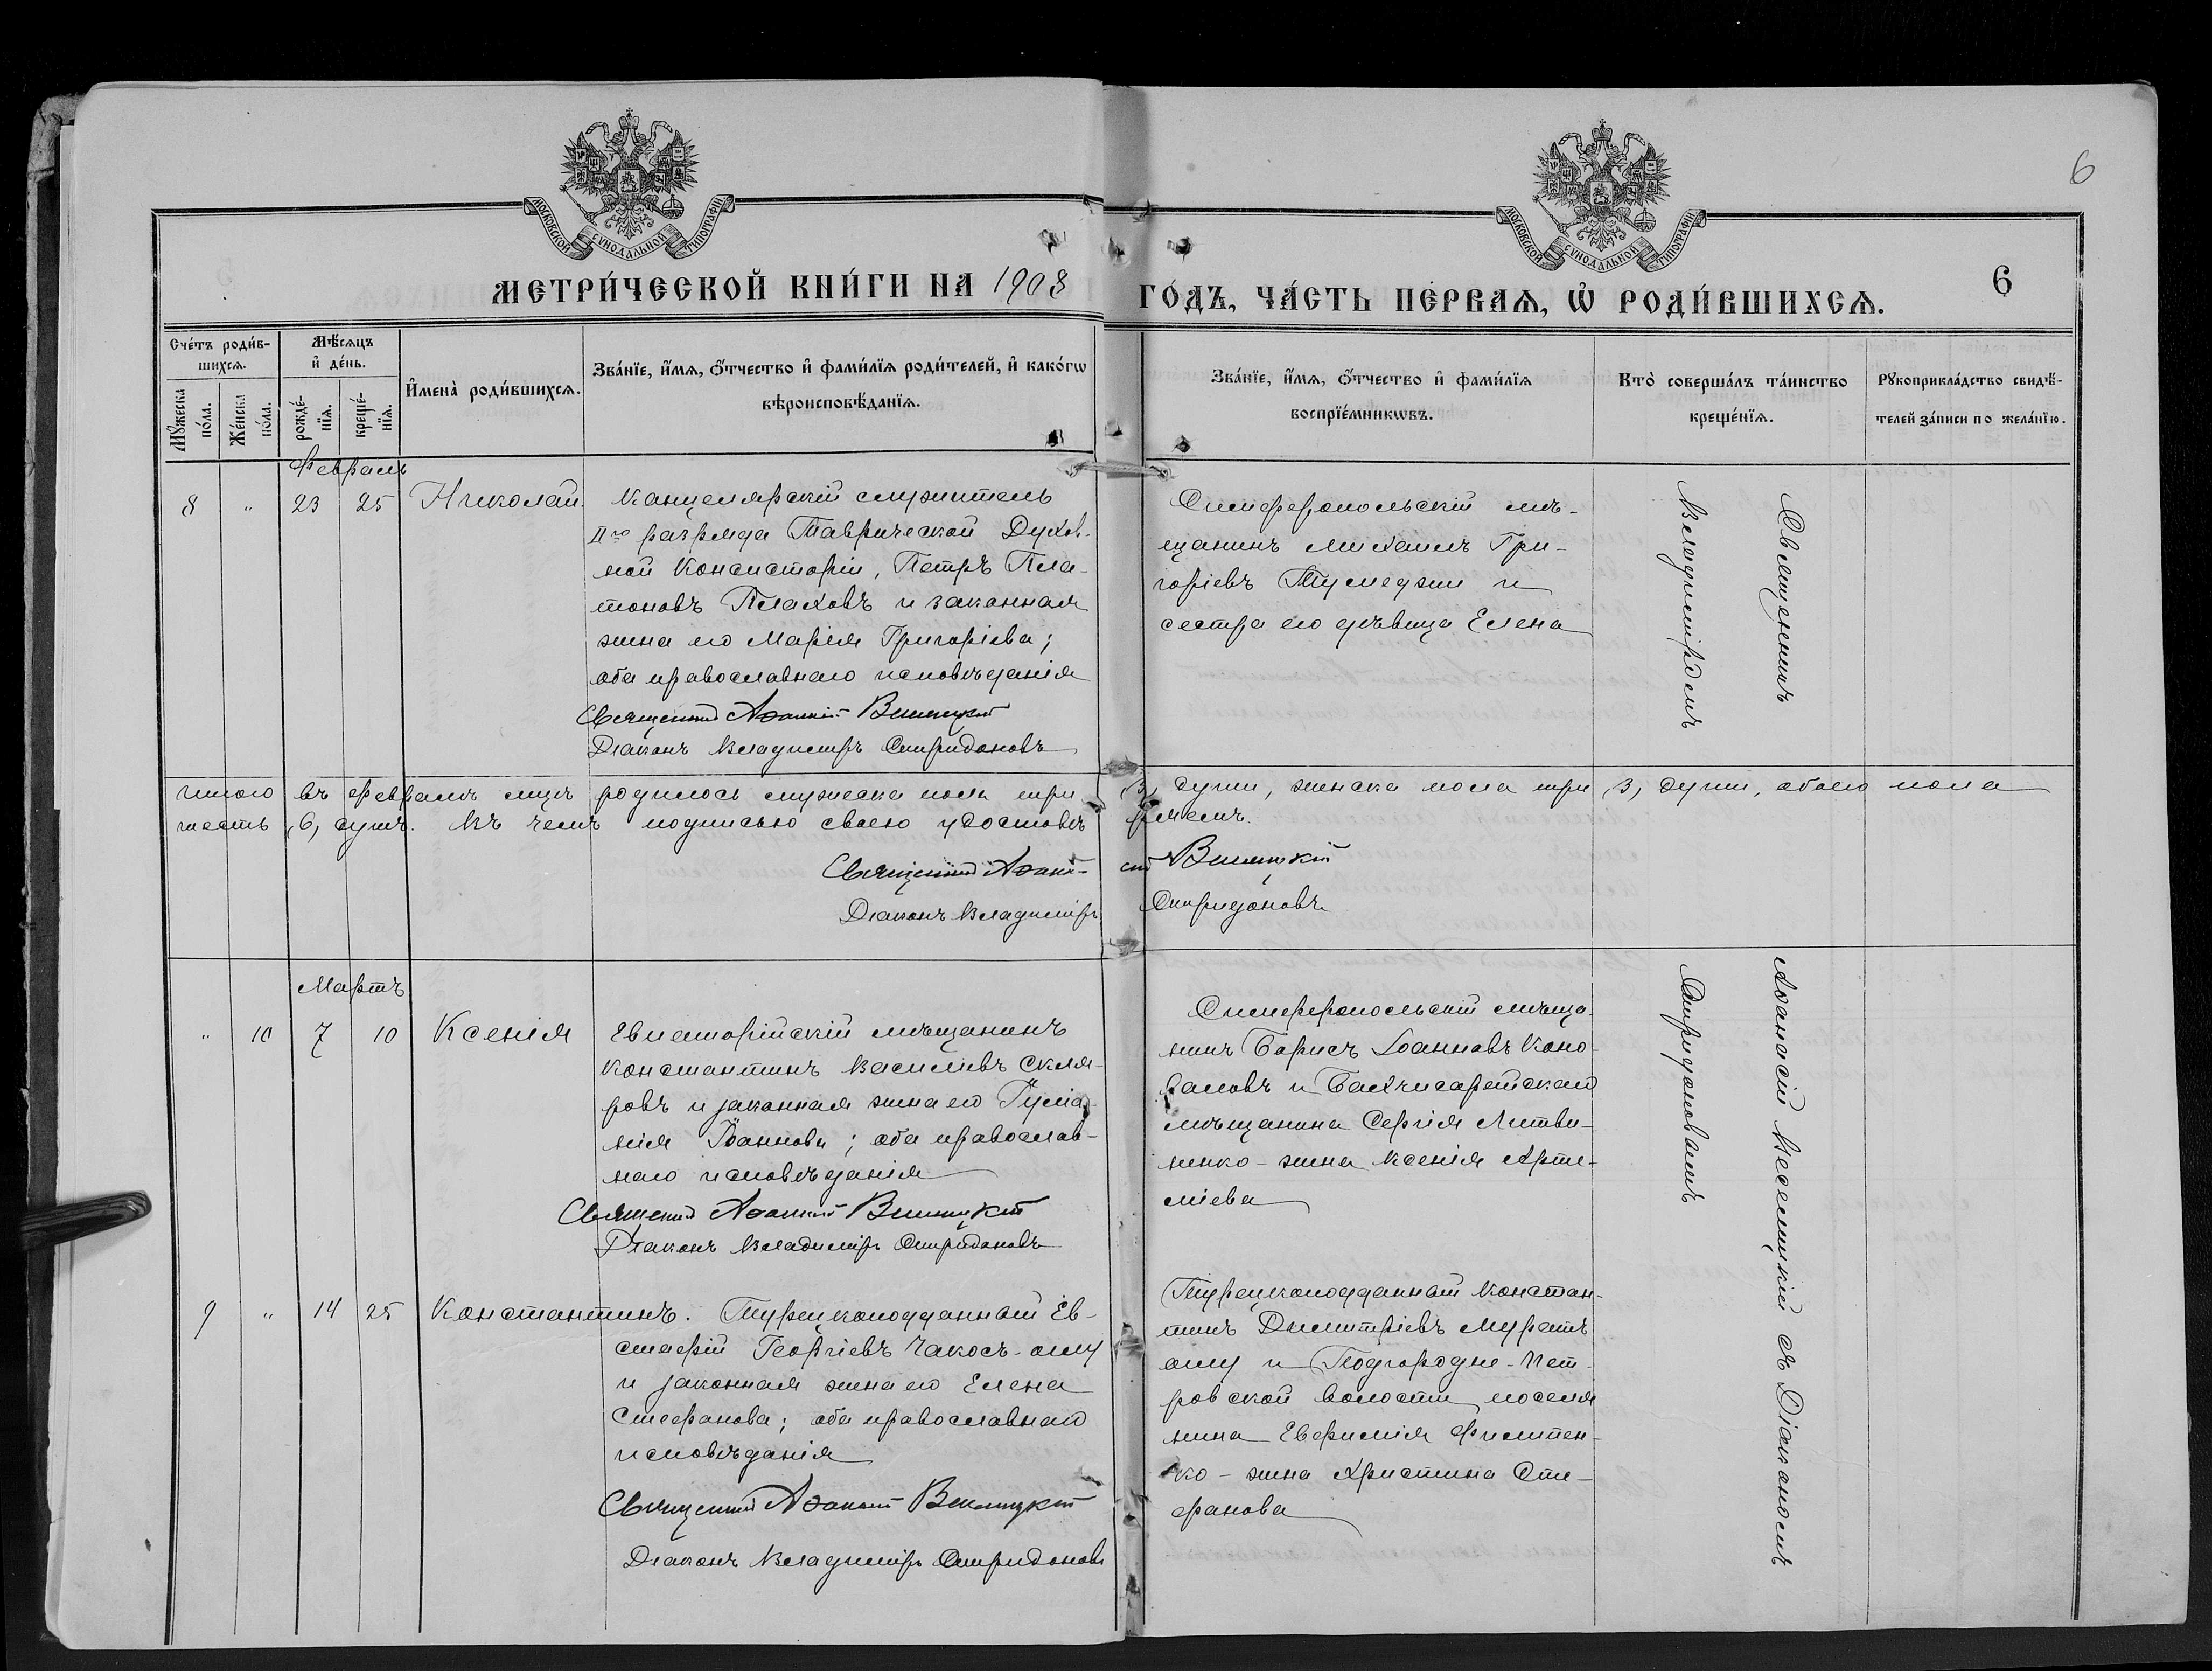 6
МОСКОВСКОЙ СѴНОДАЛЬНОЙ ТИПОГРАФІИ
МОСКОВСКОЙ СѴНОДАЛЬНОЙ ТИПОГРАФІИ
МЕТРИ́ЧЕСКОЙ КНИ́ГИ НА 1908
ГО́ДЪ, ЧА́СТЬ ПЕ́РВАѦ, Ѡ҆ РОДИ́ВШИХСѦ.
6
Сче́тъ роди́в-
шихсѧ.
Мѣ́сѧцъ
и҆ де́нь.
Мꙋ́жеска
по́ла.
Же́нска
по́ла.
рожде́-
нїѧ.
креще́-
нїѧ.
И҆мена̀ роди́вшихсѧ.
Зва́нїе, и҆́мѧ, ѻ҆́тчество и҆ фами́лїѧ роди́телей, и҆ како́гѡ
вѣроисповѣ́данїѧ.
Зва́нїе, и҆́мѧ, ѻ҆́тчество и҆ фами́лїѧ
воспрїе́мникѡвъ.
Кто̀ соверша́лъ та́инство
креще́нїѧ.
Рꙋкоприкла́дство свидѣ́-
телей за́писи по жела́нїю.
Февраль
8 " 23 25 Николай.
Канцелярскій служитель
IIго разряда Таврической Духов-
ной Консисторіи, Петръ Пла-
тоновъ Плаховъ и законная
жена его Марія Григоріева;
оба православнаго исповѣданія
Священникъ Аѳанасій
Діаконъ Владиміръ Спиридоновъ
Симферопольскій мѣ-
щанинъ Михаилъ Гри-
горіевъ и
сестра его дѣвица Елена
Священникъ
Владиміромъ
Итого въ Февралѣ мцѣ родилось мужеска пола три (3) души, женска пола три (3) души, обоего пола
шесть (6) душъ. Въ чемъ подписью своею удостовѣряемъ.
Священникъ Аѳанасій
Діаконъ Владиміръ Спиридоновъ
Мартъ
" 10 7 10 Ксенія
Евпаторійскій мѣщанинъ
Константинъ Васильевъ Скля-
ровъ и законная жена его
Іоаннова; оба православ-
наго исповѣданія
Священникъ Аѳанасій
Діаконъ Владиміръ Спиридоновъ
Симферопольскій мѣща-
нинъ Борисъ Іоанновъ Коно-
валовъ и Бахчисарайскаго
мѣщанина Сергія Литви-
ненко - жена Ксенія Арте-
міева
Аѳанасій съ Діакономъ
Спиридоновымъ
9 " 14 25 Константинъ.
Турецкоподданный Ев-
стафій Георгіевъ Чакосъ-оглу
и законная жена его Елена
Стефанова; оба православнаго
исповѣданія
Священникъ Аѳанасій
Діаконъ Владиміръ Спиридоновъ
Турецкоподданный Констан-
тинъ Димитріевъ Муратъ
оглу и Подгородне-Пет-
ровской волости поселя
нина Евфимія Филипен-
ко - жена Христина Сте-
фанова